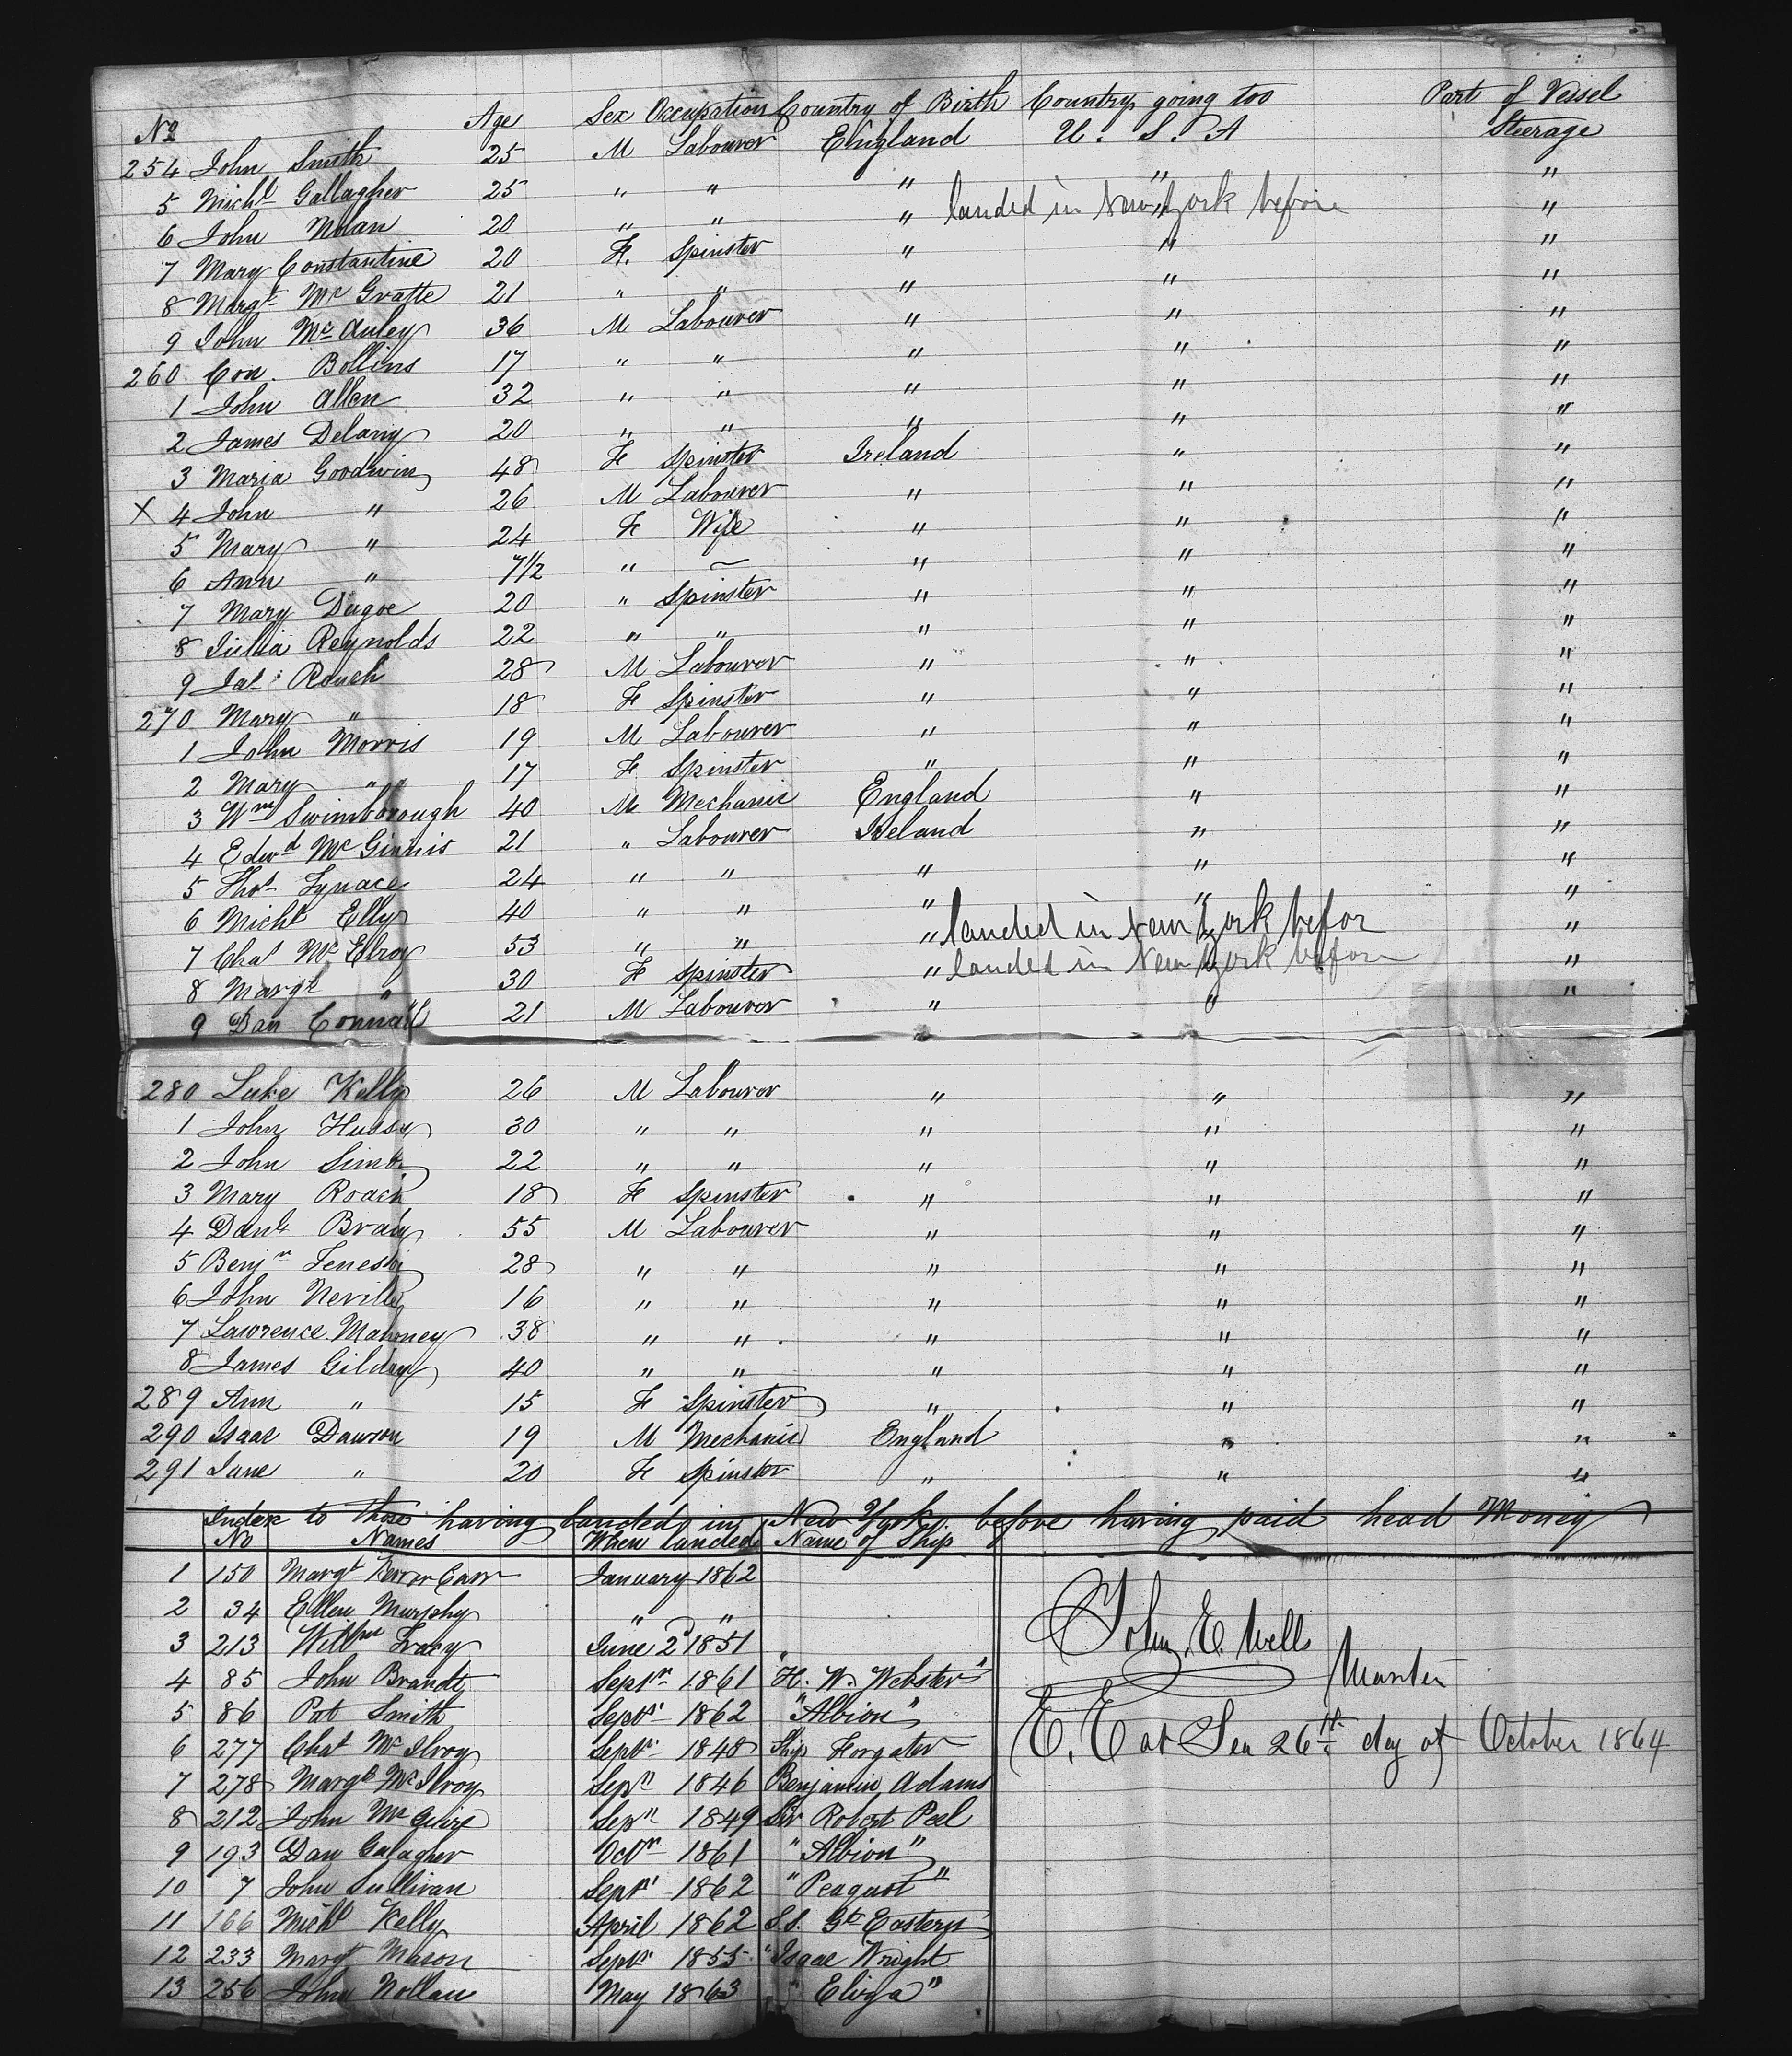 No Age Sex Occupation Country of Birth Country going too Part of Vessel
254 John Smith 25 M Labourer England U. S. A Steerage
5 Michl Gallagher 25 " " " " "
6 John Nolan 20 " " " landed in New York before " "
7 Mary Constantine 20 F. Spinster " " "
8 Margt Mc Gratte 21 " " " " "
9 John Mc Auley 36 M Labourer " " "
260 Con Bollins 17 " " " " "
1 John Allen 32 " " " " "
2 James Delany 20 " " " " "
3 Maria Goodwin 48 F Spinster Ireland " "
X 4 John " 26 M Labourer " " "
5 Mary " 24 F Wife " " "
6 Ann " 7 1/2 " ~ " " "
7 Mary Dugoe 20 " Spinster " " "
8 Julia Reynolds 22 " " " " "
9 Jas Rouch 28 M Labourer " " "
270 Mary " 18 F Spinster " " "
1 John Morris 19 M Labourer " " "
2 Mary " 17 F Spinster " " "
3 Wm Swinsborough 40 M Mechanic England " "
4 Edwd Mc Ginnis 21 " Labourer Ireland " "
5 Thos Lynace 24 " " " " "
6 Michl Elly 40 " " " " "
7 Chas Mc Elroy 53 " " " landed in New York befor "
8 Margt " 30 F Spinster " landed in New York before "
9 Dan 21 M Labourer " " "
280 Luke Kelly 26 M Labourer " " "
1 John Hussy 30 " " " " "
2 John 22 " " " " "
3 Mary Roach 18 F Spinster " " "
4 Danl Brady 55 M Labourer " " "
5 Benjn 28 " " " " "
6 John Neville 16 " " " " "
7 Lawrence Mahoney 38 " " " " "
8 James Gilday 40 " " " " "
289 Ann " 15 F Spinster " " "
290 Isaac Dawson 19 M Mechanic England " "
291 Jane " 20 F Spinster " " "
Index to those having landed in New York before having paid head Money
No Names When landed Name of Ship
1 150 Margt Ker or Carr January 1862
2 34 Ellen Murphy " "
3 213 Willm Tracy June 2d 1851
4 85 John Brandt Septr 1861 "H. W. Webster"
5 86 Pat Smith Septr 1862 "Albion"
6 277 Chas Mc Ilroy Septr 1848 Ship Forgater
7 278 Margt Mc Ilroy Sepr 1846 Benjamin Adams
8 212 John Mc Guire Sepr 1849 Sir Robert Peel
9 193 Dan Galagher Octr 1861 "Albion"
10 7 John Sullivan Septr 1862 "Peaquot"
11 166 Michl Kelly April 1862 S.S. Gt Eastern
12 233 Margt Mason Septr 1855 "Isaac Wright
13 256 John Nollan May 1863 "Eliza"
John E. Wells
Master
E. E at Sea 26th day of October 1864